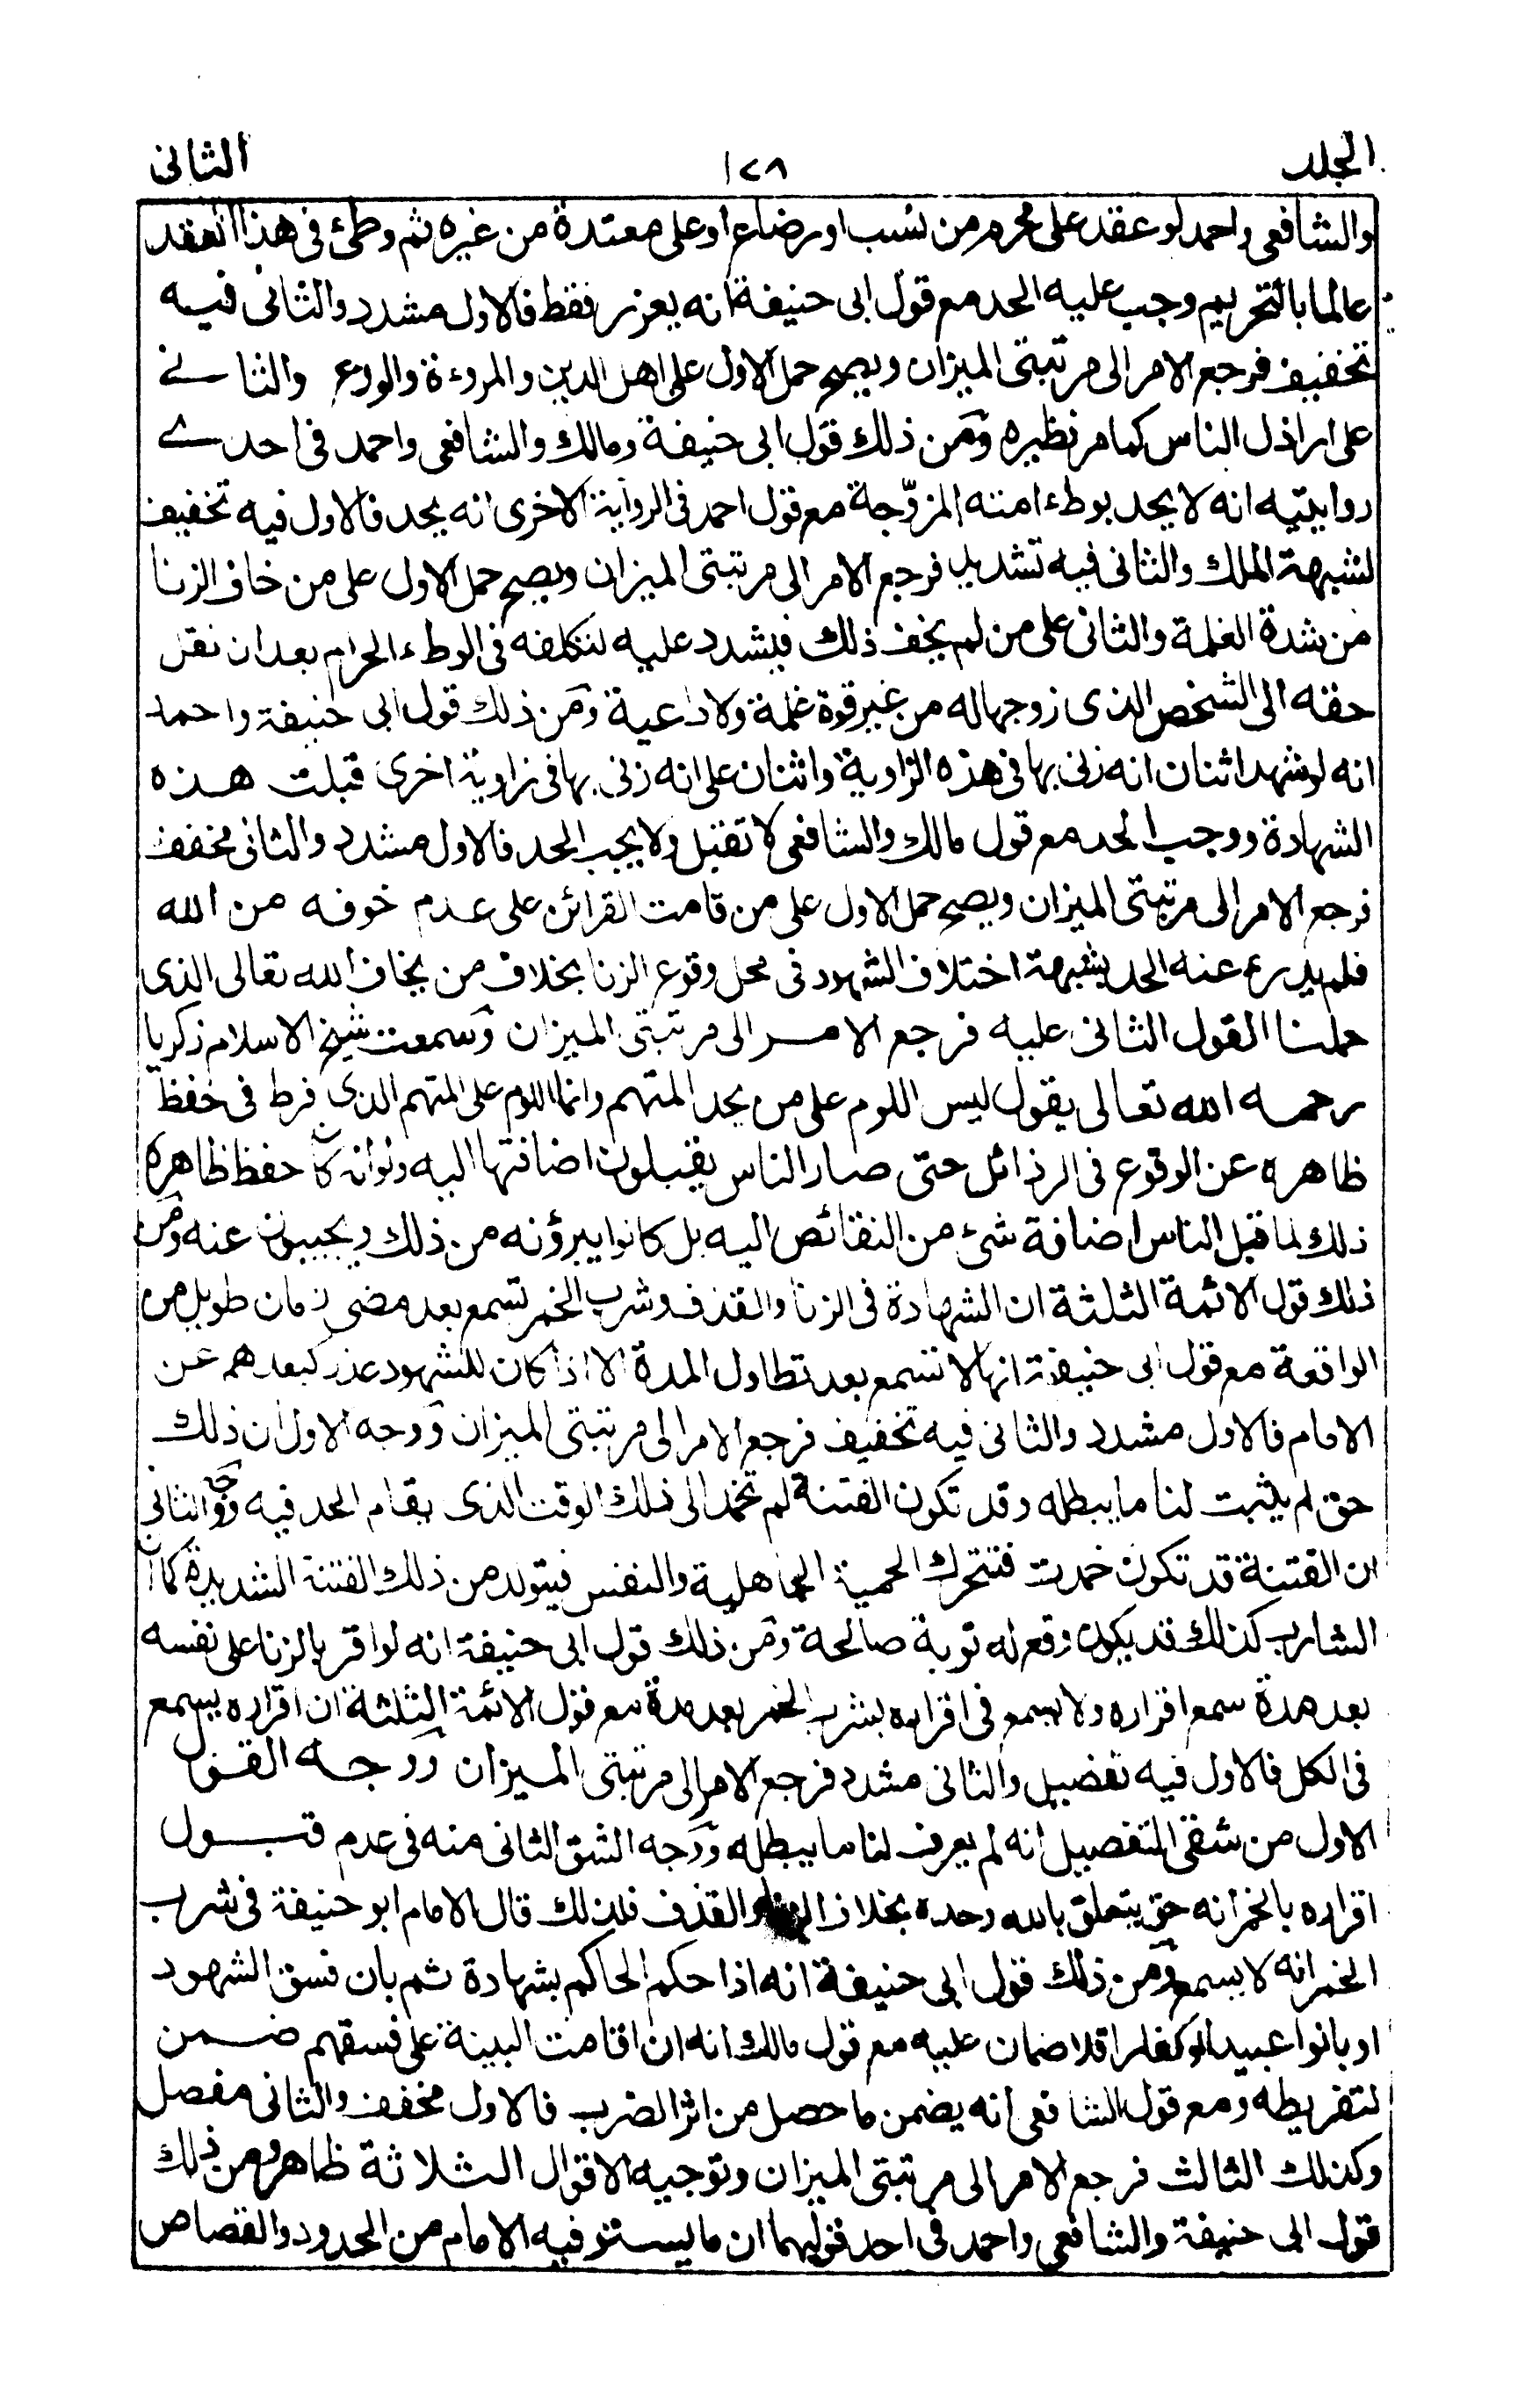 المجلد ١٢٨ الثانى
والشافعى واحمد لو عقد على محرم من نسب او رضاع او على معتدة من غيره ثم وطئ فى هذا العقد
عالما بالتحريم وجب عليه الحد مع قول ابى حنيفة انه يعزر فقط فالاول مشدد والثانى فيه
تخفيف فرجع الامر الى مرتبتى الميزان ويصح حمل الاول على اهل الدين والمروءة والورع والثانے
على اراذل الناس كما مر نظيره ومن ذلك قول ابى حنيفة ومالك والشافعى واحمد فى احدے
روايتيه انه لا يحد بوطء امته المزوّجة مع قول احمد فى الرواية الاخرى انه يحد فالاول فيه تخفيف
لشبهة الملك والثانى فيه تشديد فرجع الامر الى مرتبتى الميزان ويصح حمل الاول على من خاف الزنا
من شدة الغلمة والثانى على من لم يخف ذلك فيشدد عليه لتكلفه فى الوطء الحرام بعد ان نقل
حقه الى الشخص الذى زوجها له من غير قوة غلمة ولا داعية ومن ذلك قول ابى حنيفة واحمد
انه لو شهد اثنان انه زنى بها فى هذه الزاوية واثنان على انه زنى بها فى زاوية اخرى قبلت هذه
الشهادة ووجب الحد مع قول مالك والشافعى لا تقبل ولا يجب الحد فالاول مشدد والثانى مخفف
فرجع الامر الى مرتبتى الميزان ويصح حمل الاول على من قامت القرائن على عدم خوفه من الله
فلم يدرء عنه الحد بشبهة اختلاف الشهود فى محل وقوع الزنا بخلاف من يخاف الله تعالى الذى
حملنا القول الثانى عليه فرجع الامر الى مرتبتى الميزان وسمعت شيخ الاسلام زكريا
رحمه الله تعالى يقول ليس اللوم على من يحد المتهم وانما اللوم على المتهم الذى فرط فى حفظ
ظاهره عن الوقوع فى الرذائل حتى صار الناس يقبلون اضافتها اليه ولو انه كان حفظ ظاهره
ذلك لما قبل الناس اضافة شئ من النقائص اليه بل كانوا يبرؤنه من ذلك ويجيبون عنه ومن
ذلك قول الائمة الثلثة ان الشهادة فى الزنا والقذف وشرب الخمر تسمع بعد مضى زمان طويل من
الواقعة مع قول ابى حنيفة انها لا تسمع بعد تطاول المدة الا اذا كان للشهود عذر كبعدهم عن
الامام فالاول مشدد والثانى فيه تخفيف فرجع الامر الى مرتبتى الميزان ووجه الاول ان ذلك
حق لم يثبت لنا ما يبطله وقد تكون الفتنة لم تخمد الى ذلك الوقت الذى يقام الحد فيه ووجه الثانى
ان الفتنة قد تكون خمدت فتتحرك الحمية الجاهلية والنفس فيتولد من ذلك الفتنة الشديدة كما ان
الشارب كذلك قد يكون وقع له توبة صالحة ومن ذلك قول ابى حنيفة انه لو اقر بالزنا على نفسه
بعد مدة سمع اقراره ولا يسمع فى اقراره بشرب الخمر بعد مدة مع قول الائمة الثلثة ان اقراره يسمع
فى الكل فالاول فيه تفصيل والثانى مشدد فرجع الامر الى مرتبتى الميزان ووجه القول
الاول من شقى التفصيل انه لم يعرف لنا ما يبطله ووجه الشق الثانى منه فى عدم قبول
اقراره بالخمر انه حق يتعلق بالله وحده بخلاف الزنا والقذف فلذلك قال الامام ابو حنيفة فى شرب
الخمر انه لا يسمع ومن ذلك قول ابى حنيفة انه اذا حكم الحاكم بشهادة ثم بان فسق الشهود
او بانوا عبيدا او كفارا فلا ضمان عليه مع قول مالك انه ان اقامت البينة على فسقهم ضمن
لتفريطه ومع قول الشافعى انه يضمن ما حصل من اثر الضرب فالاول مخفف والثانى مفصل
وكذلك الثالث فرجع الامر الى مرتبتى الميزان وتوجيه الاقوال الثلاثة ظاهر ومن ذلك
قول ابى حنيفة والشافعى واحمد فى احد قوليهما ان ما يستوفيه الامام من الحدود والقصاص